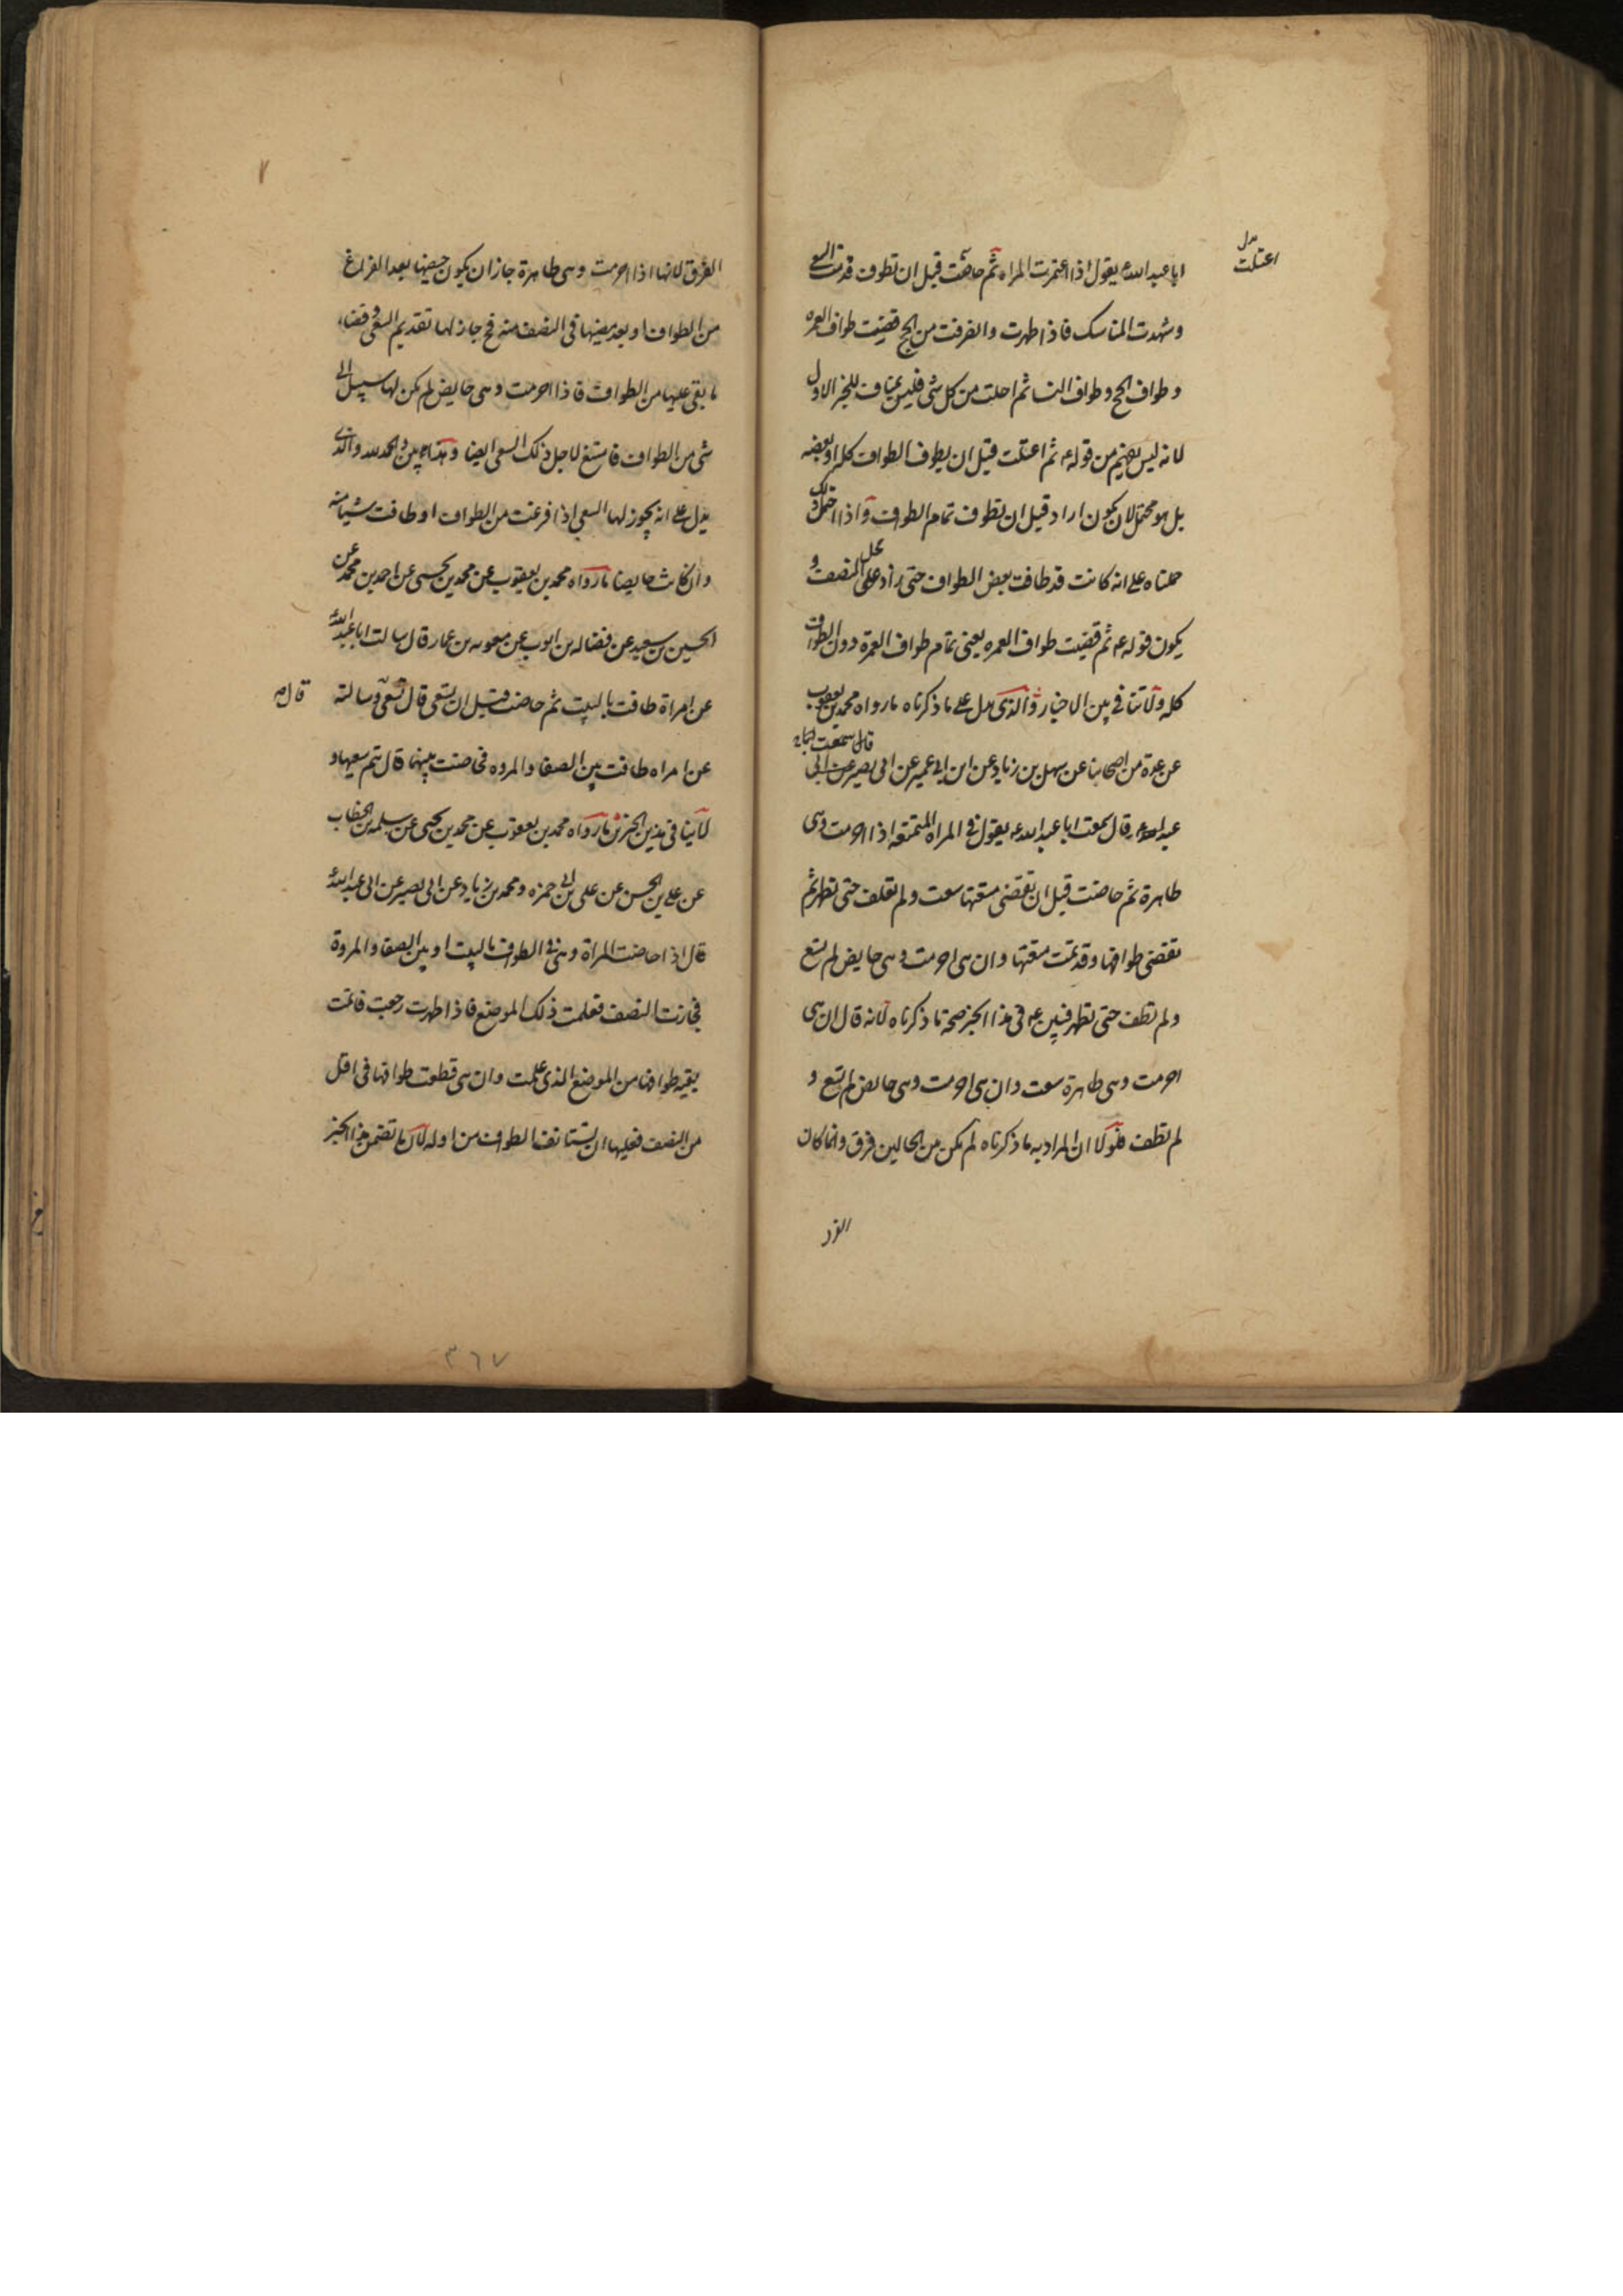 بدل
اعتلت
ابا عبد الله ع يقول اذا اعتمرت المراه ثم حاضت قبل ان تطوف قدمت السعى
وشهدت المناسك فاذا طهرت وانصرفت من الحج قضيت طواف العمره
و طواف الحج و طواف النسا ثم احلت من كل شى فليس بمناف للخبر الاول
لانه ليس فى من قوله ع ثم اعتلت قبل ان يطوف الطواف كله او بعضه
بل هو محتمل لان يكون اراد قبل ان تطوف تمام الطواف و اذا احتمل ذلك
حملناه على انه كانت قد طافت بعض الطواف حتى زاد على النصف و
يكون قوله ع ثم قضيت طواف العمره يعنى تمام طواف العمرة دون الطواف
كله ولا تنافى بين الاخبار والذى يدل على ما ذكرناه مارواه محمد بن يعقوب
قال سمعت ابا
عن عدة من اصحابنا عن سهل بن زياد عن ابن ابى عمير عن ابى بصير عن ابى
عبد الله ع قال سمعت ابا عبد الله ع يقول فى المراه المتمتعه اذا احرمت وهى
طاهرة ثم حاضت قبل ان تقضى متعتها سعت ولم تطف حتى تطهر ثم
تقضى طوافها وقد تمت متعتها و ان هى احرمت وهى حايض لم تسع
ولم تطف حتى تطهر فبين ع فى هذا الخبر صحة ما ذكرناه لانه قال ان هى
احرمت وهى طاهرة سعت وان هى احرمت وهى حايض لم تسع و
لم تطف فلولا ان المراد به ما ذكرناه لم يكن من الحالين فرق وانما كان
الفرق
الفرق لانها اذا احرمت وهى طاهرة جاز ان يكون حيضها بعد الفراغ
من الطواف او بعد مضيها فى النصف منه فح جاز لها تقديم السعى و قضاء
ما بقى عليها من الطواف فاذا احرمت وهى حايض لم يكن لها سبيل الى
شى من الطواف فامتنع لاجل ذلك السعى ايضا وهذا بين والحمد لله والذى
يدل على انه يجوز لها السعى اذا فرغت من الطواف او طافت شيئا منه
وان كانت حايضا مارواه محمد بن يعقوب عن محمد بن يحيى عن احمد بن محمد عن
الحسين بن سعيد عن فضاله بن ايوب عن معويه بن عمار قال سالت ابا عبد الله ع
عن امراة طافت بالبيت ثم حاضت قبل ان تسعى قال تسعى وسالته
قال ص
عن امراه طافت بين الصفا والمروه فحاضت بينهما قال تتم سعيها و
لا ينافى هذين الخبرين مارواه محمد بن يعقوب عن محمد بن يحيى عن سلمه بن الخطاب
عن على بن الحسن عن على بن ابى حمزه و محمد بن زياد عن ابى بصير عن ابى عبد الله ع
قال اذا حاضت المراة وهى فى الطواف بالبيت او بين الصفا و المروة
فجازت النصف فعلمت ذلك الموضع فاذا طهرت رجعت فاتمت
بقيه طوافها من الموضع الذى علمت وان هى قطعت طوافها فى اقل
من النصف فعليها ان تستانف الطواف من اوله لان ما تضمن هذا الخبر
٣٦٧